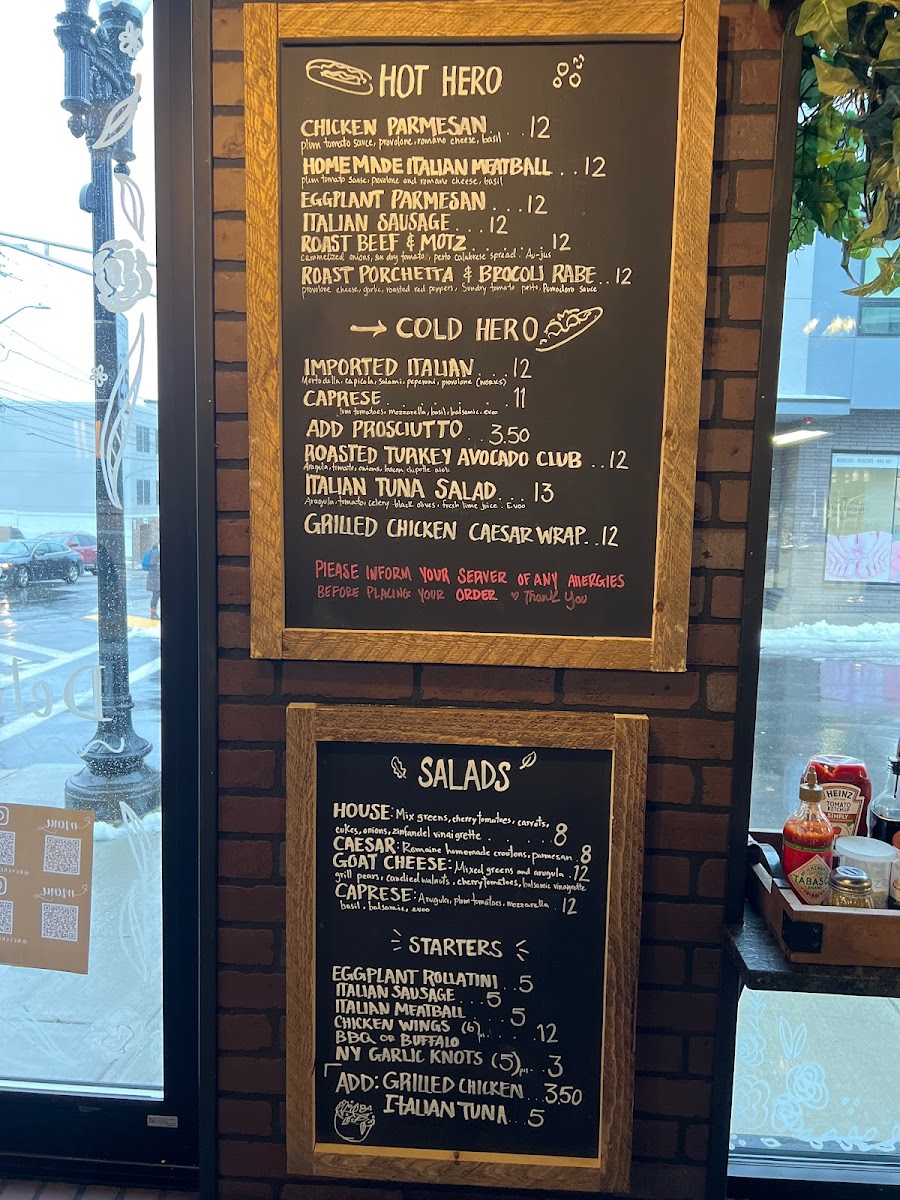 HOT HERO
CHICKEN PARMESAN . . 12
plum tomato sauce, provolone, romano cheese, basil
HOMEMADE ITALIAN MEATBALL . . 12
plum tomato sause, provolone and romano cheese, basil
EGGPLANT PARMESAN . . . 12
ITALIAN SAUSAGE . . . 12
ROAST BEEF & MOTZ . . . . . . 12
caramelized onions, sun dry tomato, pesto calabrese spread. Au-jus
ROAST PORCHETTA & BROCOLI RABE . . 12
provolone cheese, garlic, roasted red peppers, Sundry tomato pesto, Pomodoro sauce
→ COLD HERO
IMPORTED ITALIAN . . . 12
Mortadella, capicola, salami, peperoni, provolone (works)
CAPRESE . . . . . . . . . 11
tomatoes, mozzarella, basil, balsamic, evoo
ADD PROSCIUTTO . . 3.50
ROASTED TURKEY AVOCADO CLUB . . 12
Arugula, tomato, onions, bacon chipotle aioli
ITALIAN TUNA SALAD . . . 13
Aragula, tomato, celery black olives, fresh lime juice. Evoo
GRILLED CHICKEN CAESAR WRAP . . 12
PLEASE INFORM YOUR SERVER OF ANY AllERGIES
BEFORE PLACING YOUR ORDER ♡ Thank You
SALADS
HOUSE: Mix greens, cherry tomatoes, carrots,
cukes, onions, zinfandel vinaigrette . . . . . . . 8
CAESAR: Romaine homemade croutons, parmesan . 8
GOAT CHEESE: Mixed greens and arugula . 12
grill pears, candied walnuts, cherry tomatoes, balsamic vinaigrette
CAPRESE: Arugula, plum tomatoes, mozzarella . 12
basil, balsamic, evoo
STARTERS
EGGPLANT ROLLATINI . . 5
ITALIAN SAUSAGE . . . 5
ITALIAN MEATBALL . . . 5
CHICKEN WINGS (6) . . . 12
BBQ OR BUFFALO
NY GARLIC KNOTS (5) . . 3
ADD: GRILLED CHICKEN . . . 3.50
ITALIAN TUNA . . . 5
HEINZ
TOMATO
KETCHUP
SIMPLY
TABASCO